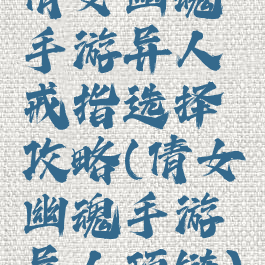 倩女幽魂
手游异人
戒指选择
攻略(倩女
幽魂手游
异人项链)